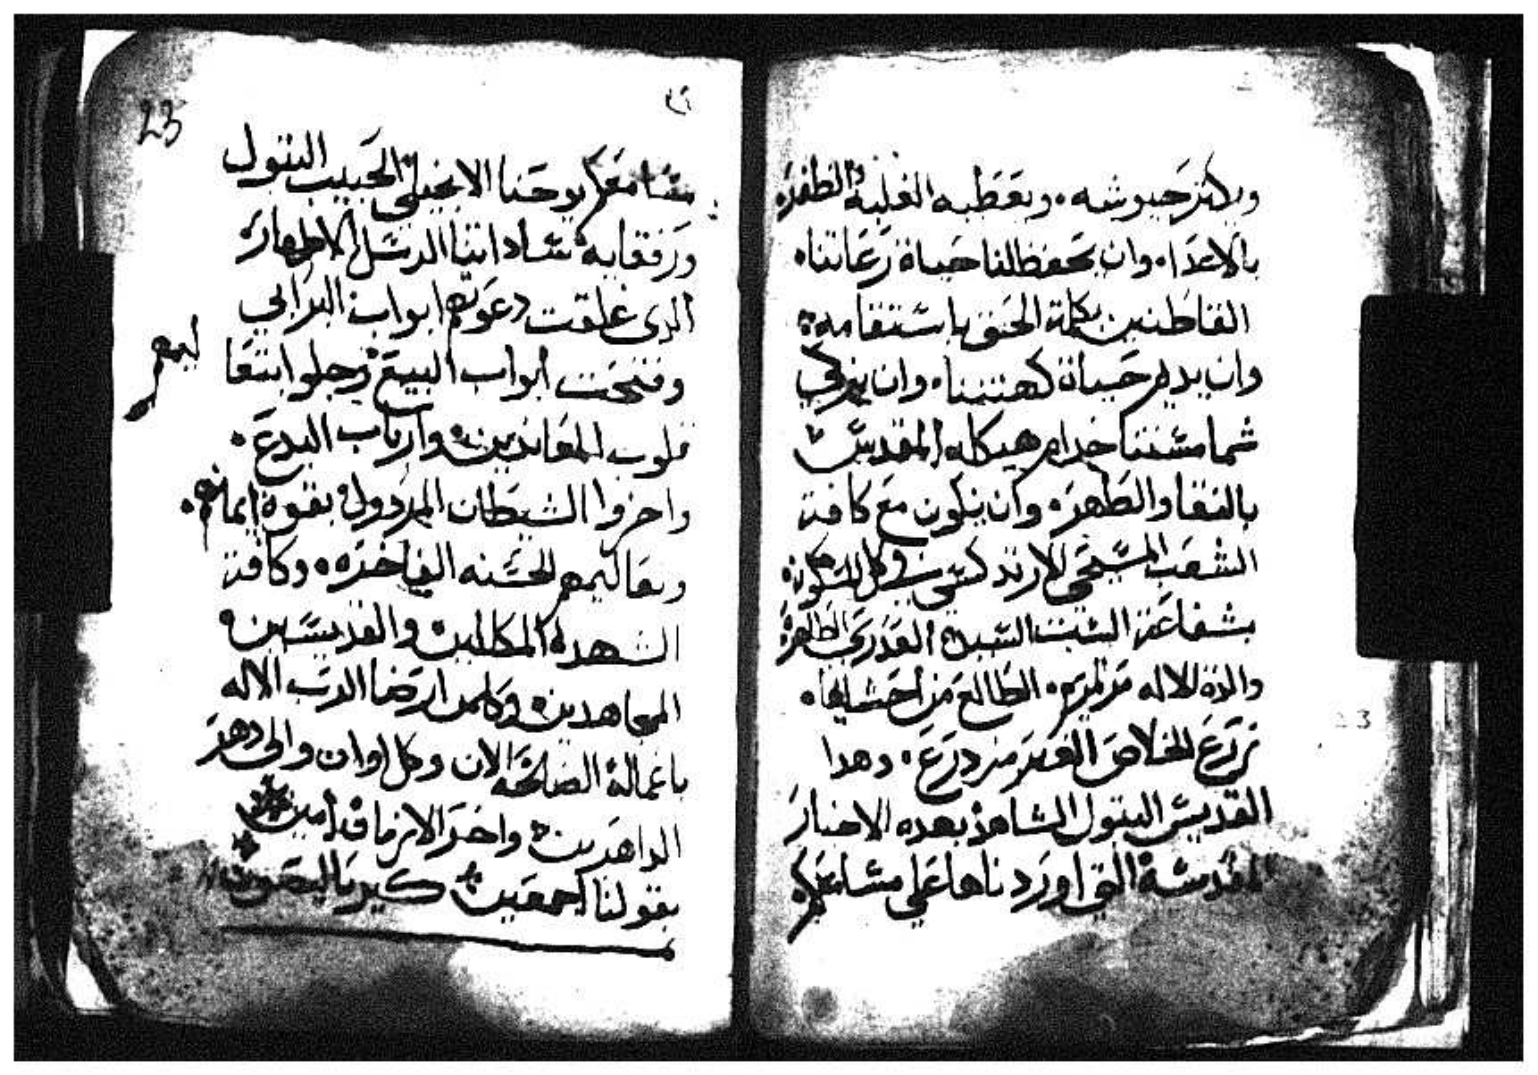 ويكتر جيوشه. ويعطيه الغلبة والظفر
بالاعدا. وان يحفظ لنا حياة رعاتنا.
القاطنين بكلمة الحق باستقامه.
وان يديم حياة كهنتنا. وان يزكي
شمامستنا خدام هيكله المقدس
بالنقا والطهر. وان يكون مع كافة
الشعب المسيحي الارتدكسي في كل
بشفاعة الست السيدة العدرى الطاهرة
والدة الاله مرتمريم. الطالع من احشايها.
زرع الخلاص الغير مزدرع. وهدا
القديس البتول الشاهد بهده الاخبار
المقدسة التي اوردناها علي مسامعكم
يوحنا الانجيلي الحبيب البتول
ورفقايه ساداتنا الرسل الاطهار
الدي غلقت دعوتهم ابواب البرابي
وفتحت ابواب البيع وجلوا
قلوب المعاندين وارباب البدع.
واخزوا الشيطان المردول بقوة ايمانهم.
وتعاليمهم الحسنه الفاخره. وكافة
الشهدا المكللين والقديسين
المجاهدين وكلمن ارضا الرب الاله
باعماله الصالحه الان وكل اوان والى دهر
الداهرين واخر الازمان امين
بقولنا اجمعين كيرياليصون
23